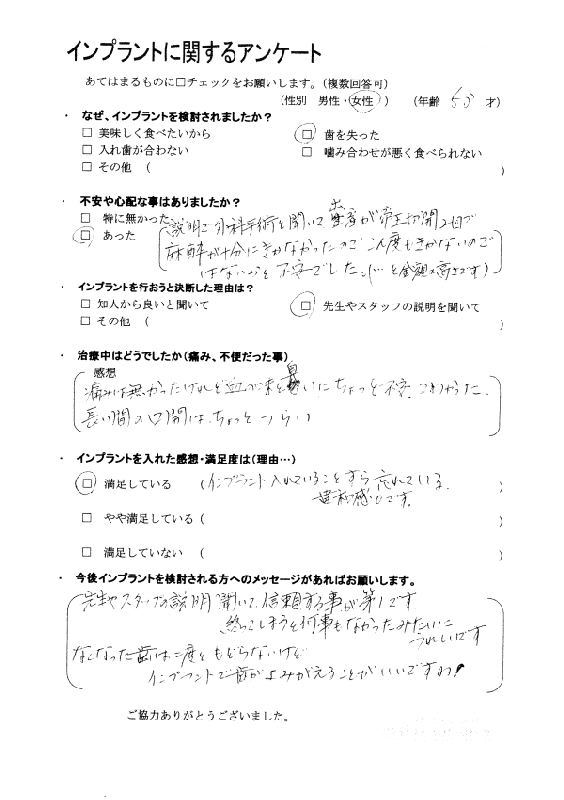 インプラントに関するアンケート
あてはまるものに□チェックをお願いします。（複数回答可）
（性別　男性・女性）　（年齢　50　才）
・ なぜ、インプラントを検討されましたか？
□ 美味しく食べたいから　□ 歯を失った
□ 入れ歯が合わない　□ 噛み合わせが悪く食べられない
□ その他（　）
・ 不安や心配な事はありましたか？
□ 特に無かった
□ あった
説明で外科手術と聞いて、出産が帝王切開2回で
麻酔が十分にきかなかったので今度もきかないので
はないかと不安でした（…と金額の高さです）
・ インプラントを行おうと決断した理由は？
□ 知人から良いと聞いて　□ 先生やスタッフの説明を聞いて
□ その他（　）
・ 治療中はどうでしたか（痛み、不便だった事）
感想
痛みは無かったけれど血の味と臭いにちょっと
長い間の口開けは、ちょっとつらい
・ インプラントを入れた感想・満足度は（理由…）
□ 満足している（インプラント入れていることすら忘れている。
違和感0です。）
□ やや満足している（　）
□ 満足していない（　）
・ 今後インプラントを検討される方へのメッセージがあればお願いします。
先生やスタッフの説明聞いて、信頼する事が第1です
終ってしまうと何事もなかったみたいに
うれしいです
なくなった歯は二度ともどらないけど
インプラントで歯がよみがえることがいいですね！
ご協力ありがとうございました。